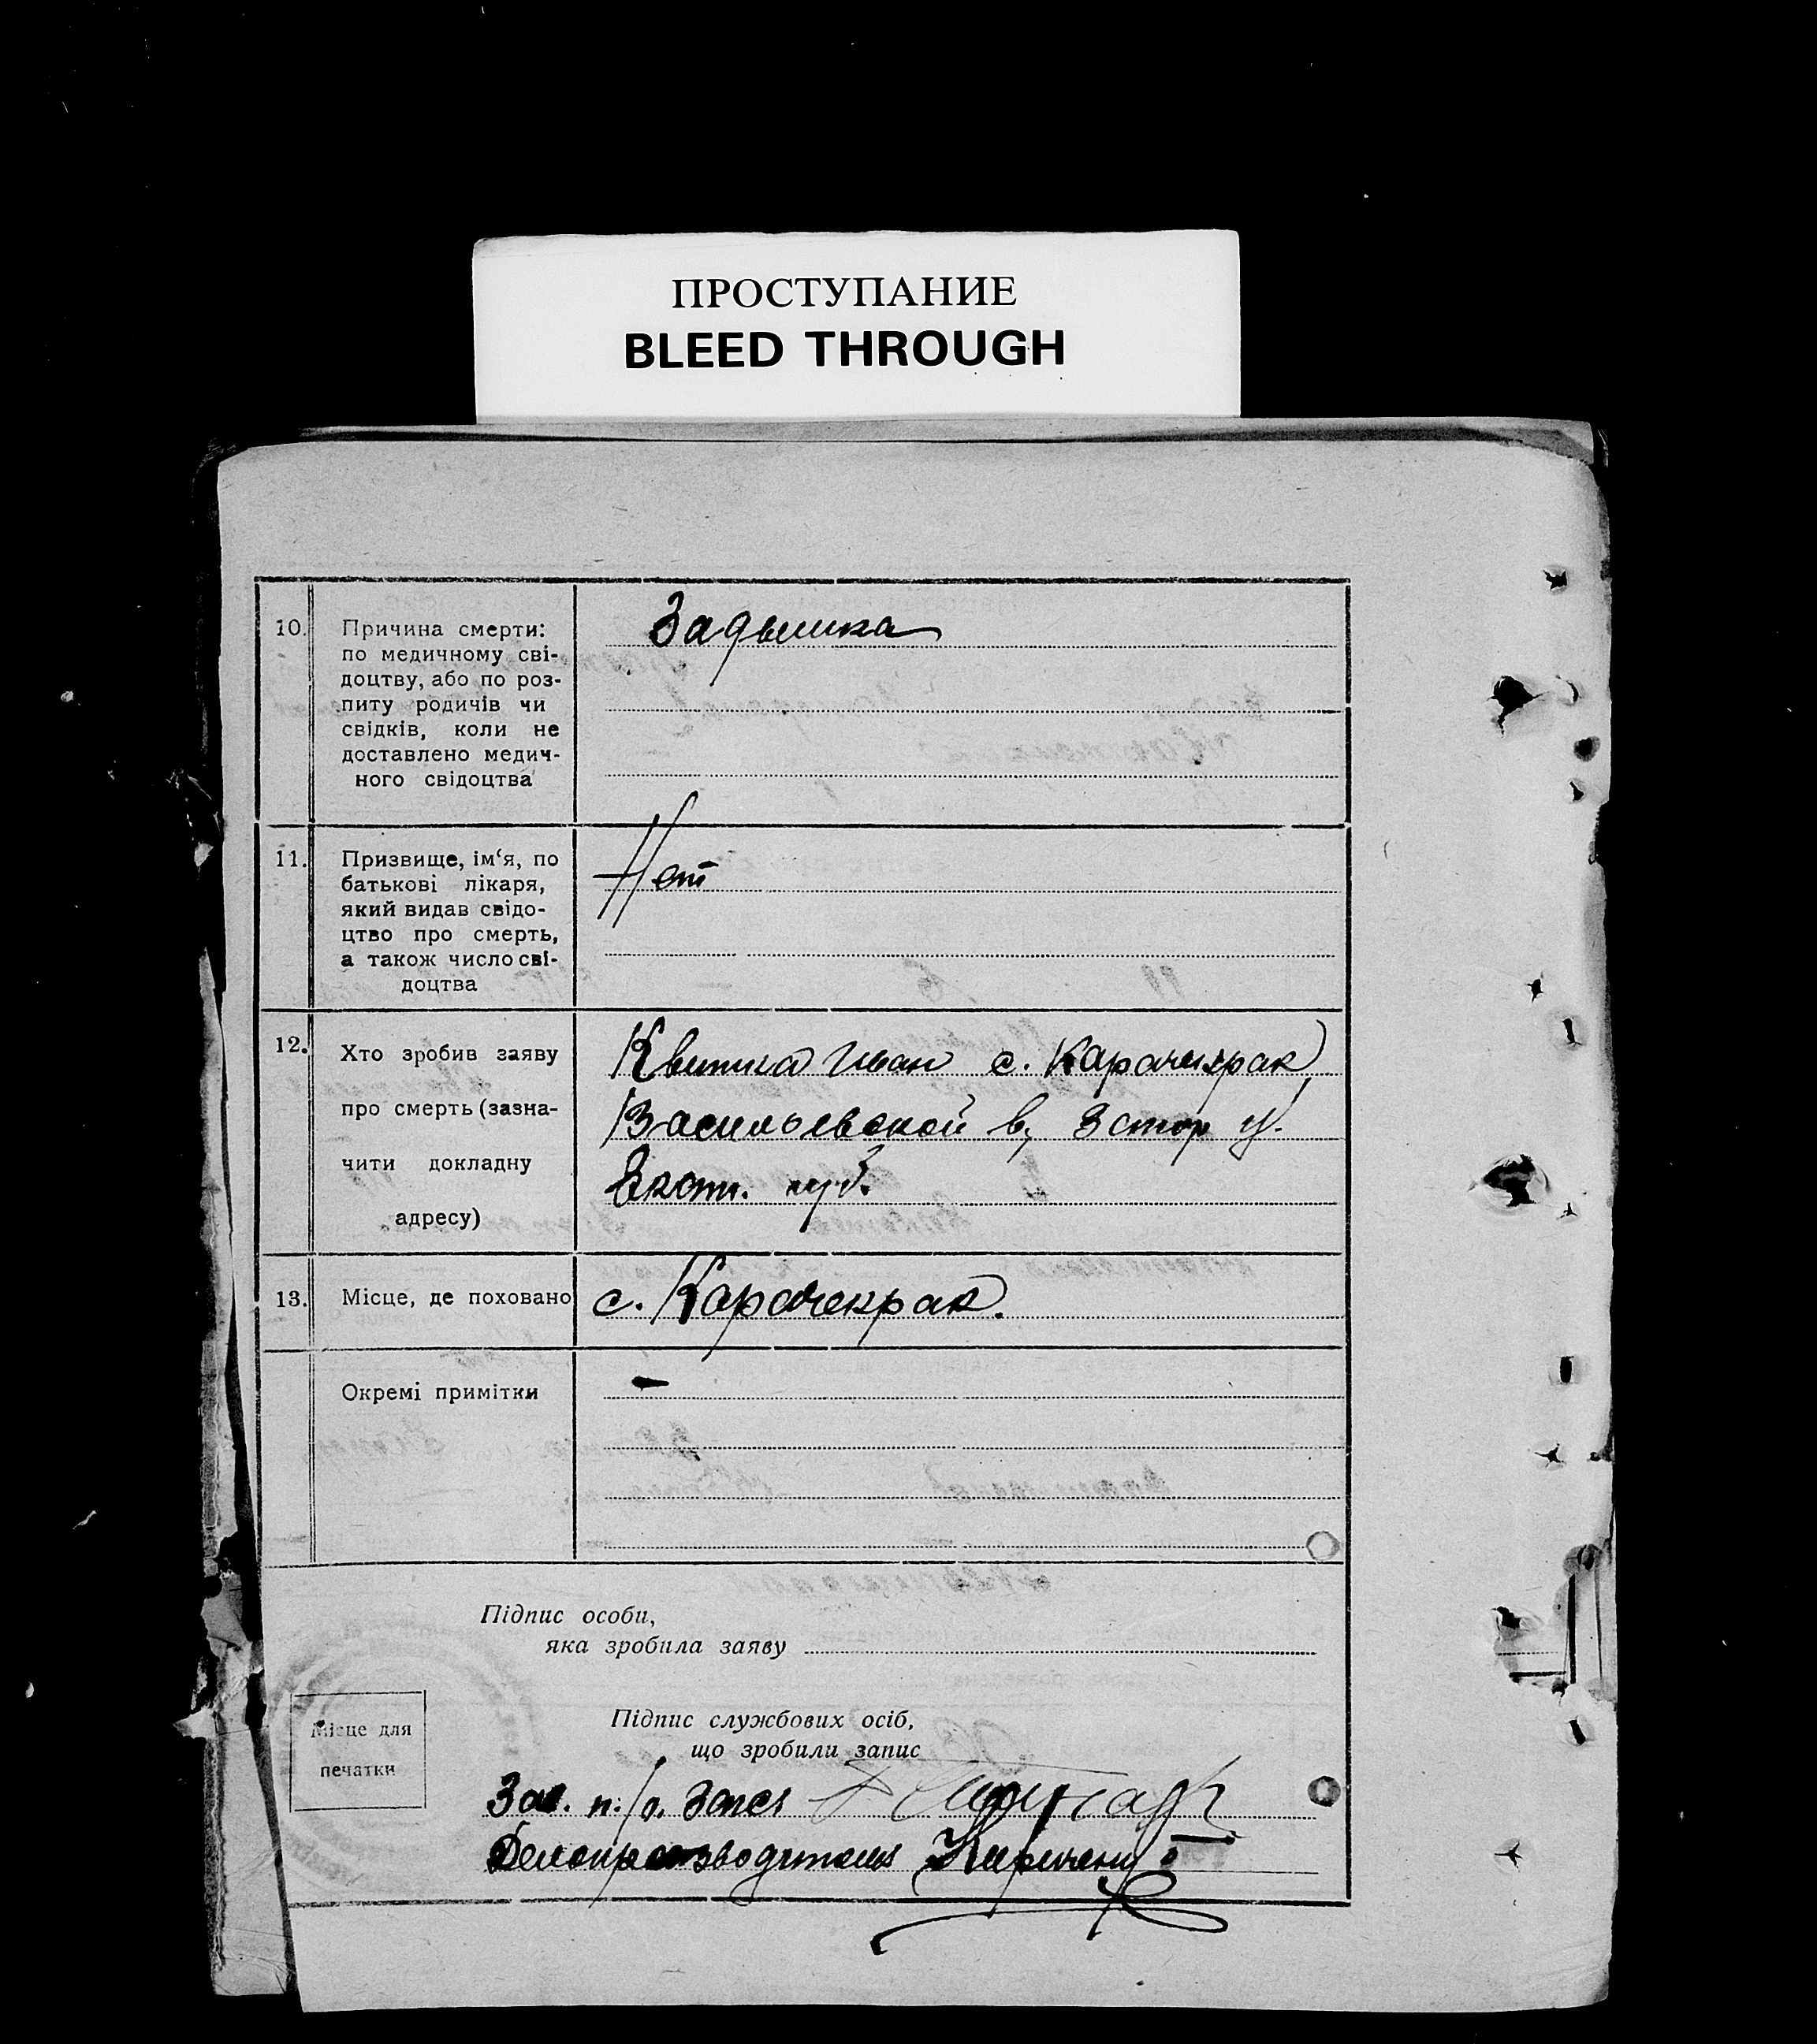 ПРОСТУПАНИЕ
BLEED THROUGH
10. Причина смерти:
по медичному сві-
доцтву, або по роз-
питу родичів чи
свідків, коли не
доставлено медич-
ного свідоцтва
Задышка
11. Призвище, ім‘я, по
батькові лікаря,
який видав свідо-
цтво про смерть,
а також число сві-
доцтва
Нет
12. Хто зробив заяву
про смерть (зазна-
чити докладну
адресу)
Квитка Иван с. Карачекрак
Васильевской в, Запор у.
Екат. губ.
13. Місце, де поховано
с. Карачекрак.
Окремі примітки
–
Підпис особи,
яка зробила заяву
Місце для
печатки
Підпис службових осіб,
що зробили запис
Зав. п./о. Загса
Делопроизводитель